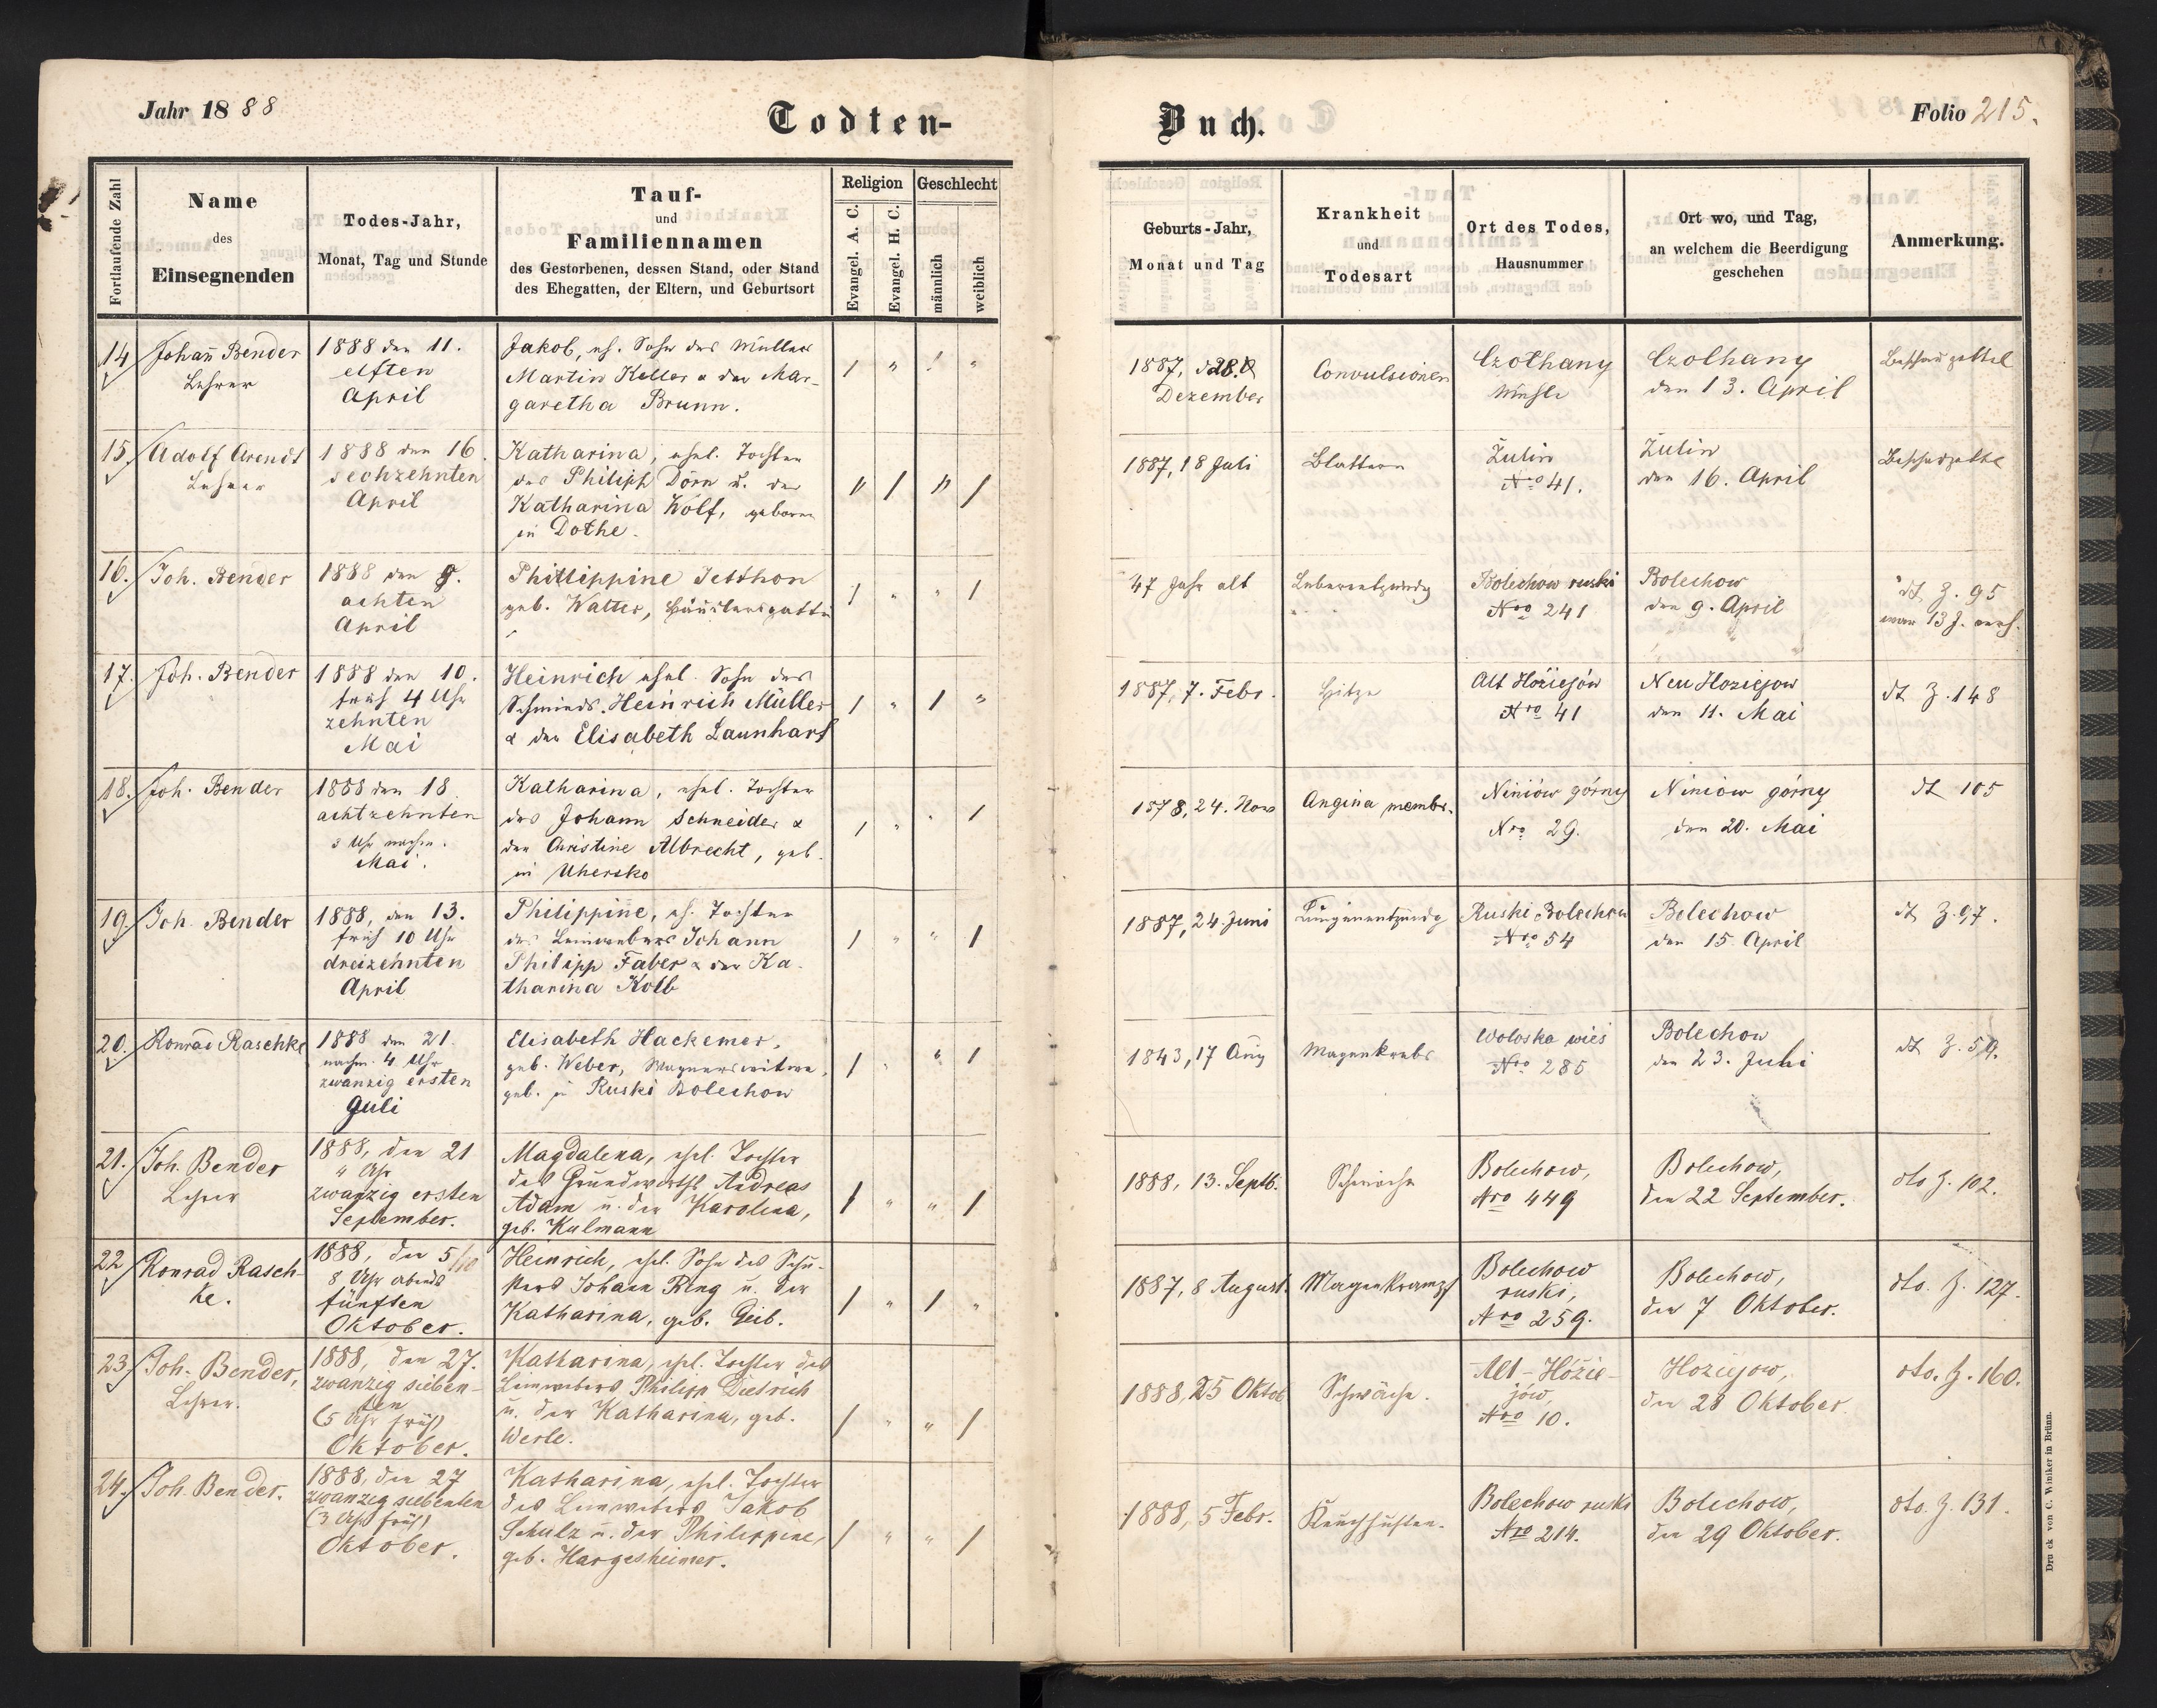 Jahr 1888
Todten-
Buch.
Folio 215.
Fortlaufende Zahl
Name
des
Einsegnenden
Todes-Jahr,
Monat, Tag und Stunde
Tauf-
und
Familiennamen
des Gestorbenen, dessen Stand, oder Stand
des Ehegatten, der Eltern, und Geburtsort
Religion
Evangel. A. C.
Evangel. H. C.
Geschlecht
männlich
weiblich
Geburts-Jahr,
Monat und Tag
Krankheit
und
Todesart
Ort des Todes,
Hausnummer
Ort wo, und Tag,
an welchem die Beerdigung
geschehen
Anmerkung.
14
Johañ Bender
Lehrer
1888 den 11.
elften
April
Jakob, eh. Sohn des Müllers
Martin Keller & der Mar-
garetha Brunn.
/ " / "
1887, d 28.
Dezember
Convulsionen
Czolhany
Mühle
Czolhany
den 13. April
Beschauzettel
15.
Adolf Arendt
Lehrer
1888 den 16.
sechzehnten
April
Katharina, ehel. Tochter
des Philipp Dörn u. der
Katharina Wolf, geboren
in Dothe.
" / " /
1887, 18 Juli
Blattern
Żulin
Nro 41.
Żulin
den 16. April
16.
Joh. Bender
1888 den 8.
achten
April
Phillippine
geb. Walter, Häuslersgattin
/ " " /
47 Jahr alt
Leberentzündg
Bolechow ruski
Nro 241
Bolechow
den 9. April
dt Z. 95
war 13 J. verh.
17.
Joh. Bender
1888 den 10.
früh 4 Uhr
zehnten
Mai
Heinrich ehel. Sohn des
Schmieds Heinrich Müller
& der Elisabeth Launhart
/ " / "
1887, 7. Febr.
Hitze
Alt Hoziejów
Nro 41
Neu Hoziejow
den 11. Mai
dt Z. 148
18.
Joh. Bender
1888 den 18.
achtzehnten
3 Uhr nachm.
Mai.
Katharina, ehel. Tochter
des Johann Schneider &
der Christine Albrecht, geb.
in Uhersko
/ " " /
1878, 24. Nov
Angina membr.
Niniów górny
Nro 29.
Niniow górny
den 20. Mai
dt 105
19.
Joh. Bender
1888, den 13.
früh 10 Uhr
dreizehnten
April
Philippine, eh. Tochter
des Leinwebers Johann
Philipp Faber & der Ka-
tharina Kolb
/ " " /
1887, 24 Juni
Lungenentzündg
Ruski Bolechow
Nro 54
Bolechow
den 15. April
dt Z. 97.
20.
Konrad Raschke
1888 den 21.
nachm. 4 Uhr
zwanzig ersten
Juli
Elisabeth Hackemer,
geb. Weber, Wagnerswitwe,
geb. in Ruski Bolechow
/ " " /
1843, 17 Aug
Magenkrebs
Woloska wieś
Nro 285
Bolechow
den 23. Juli
dt Z. 59.
21.
Joh. Bender
Lehrer
1888, den 21
" Uhr
zwanzig ersten
September.
Magdalena, ehel. Tochter
des Grundwirths Andreas
Adam u. der Karolina,
geb. Kulmann
/ " " /
1888, 13. Septb.
Schwäche
Bolechow,
Nro 449
Bolechow,
den 22 September.
dto Z. 102.
22
Konrad Rasch-
ke.
1888, den 5/10
8 Uhr abends
fünften
Oktober.
Heinrich, ehel. Sohn des Schu-
sters Johann Ring u. der
Katharina, geb. Geib.
/ " / "
1887, 8 August.
Magenkrampf
Bolechow
ruski,
Nro 259.
Bolechow,
den 7 Oktober.
dto. Z. 127.
23
Joh. Bender,
Lehrer.
1888, den 27.
zwanzig sieben-
ten
(5 Uhr früh)
Oktober.
Katharina, ehel. Tochter des
Leinwebers Philipp Dietrich
u. der Katharina, geb.
Werle.
/ " " /
1888, 25 Oktob
Schwäche.
Alt-Hózie-
jów,
Nro 10.
Hoziejow,
den 28 Oktober.
dto. Z. 160.
24.
Joh. Bender.
1888, den 27
zwanzig siebenten
(3 Uhr früh)
Oktober.
Katharina, ehel. Tochter
des Leinwebers Jakob
Schulz u. der Philippine,
geb. Hargesheimer.
/ " " /
1888, 5 Febr.
Keuchhusten.
Bolechow ruski
Nro 214.
Bolechow,
den 29 Oktober.
dto. Z. 131.
Druck von C. Winiker in Brünn.